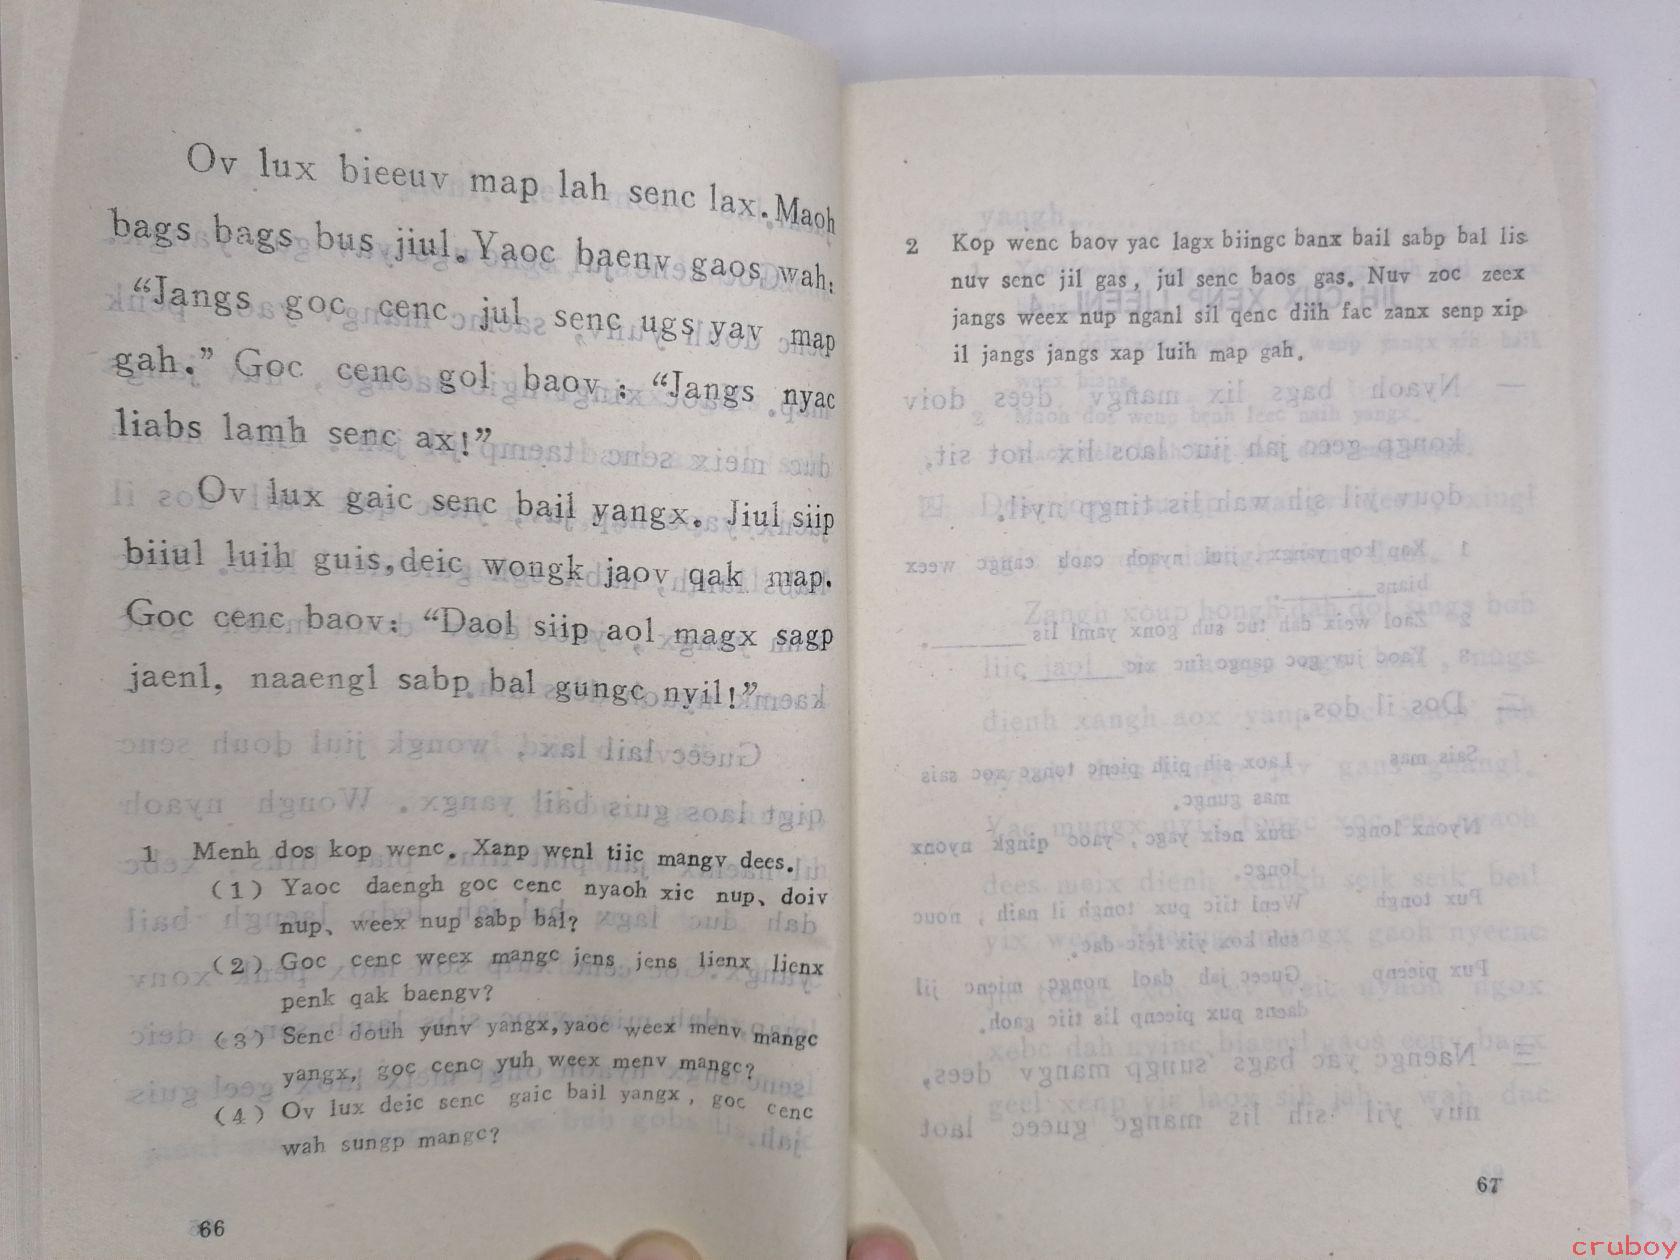 Ov lux bieeuv map lah senc lax. Maoh
bags bags bus jiul. Yaoc baenv gaos wah:
“Jangs goc cenc jul senc ugs yav map
gah.” Goc cenc gol baov: “Jangs nyac
liabs lamh senc ax!”
Ov lux gaic senc bail yangx. Jiul siip
biiul luih guis, deic wongk jaov qak map.
Goc cenc baov: “Daol siip aol magx sagp
jaenl, naaengl sabp bal gungc nyil!”
1 Menh dos kop wenc. Xanp wenl tiic mangv dees.
(1) Yaoc daengh goc cenc nyaoh xic nup、doiv
nup、weex nup sabp bal?
(2) Goc cenc weex mangc jens jens lienx lienx
penk qak baengv?
(3) Senc douh yunv yangx, yaoc weex menv mangc
yangx, goc cenc yuh weex menv mangc?
(4) Ov lux deic senc gaic bail yangx, goc cenc
wah sungp mangc?
66
2 Kop wenc baov yac lagx biingc banx bail sabp bal lis
nuv senc jil gas, jul senc baos gas. Nuv zoc zeex
jangs weex nup nganl sil qenc diih fac zanx senp xip
il jangs jangs xap luih map gah.
67
cruboy